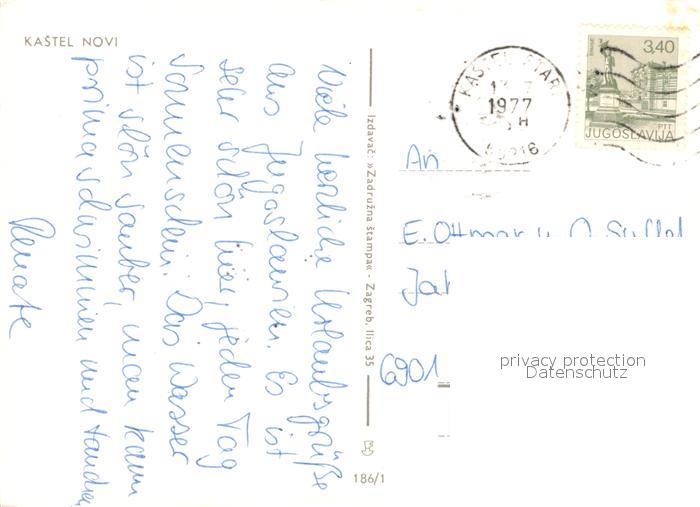 KAŠTEL NOVI
Viele herzliche Urlaubsgrüße
aus Jugoslawien. Es ist
sehr schön hier, jeden Tag
Sonnenschein. Das Wasser
ist schön sauber, man kann
prima schwimmen und tauchen
Renate
Izdavač: »Zadružna štampa« - Zagreb, Ilica 35
186/1
KAŠTEL STARI
1977
3,40
PTT
JUGOSLAVIJA
An
E. Ottmar u.
6901
privacy protection
Datenschutz